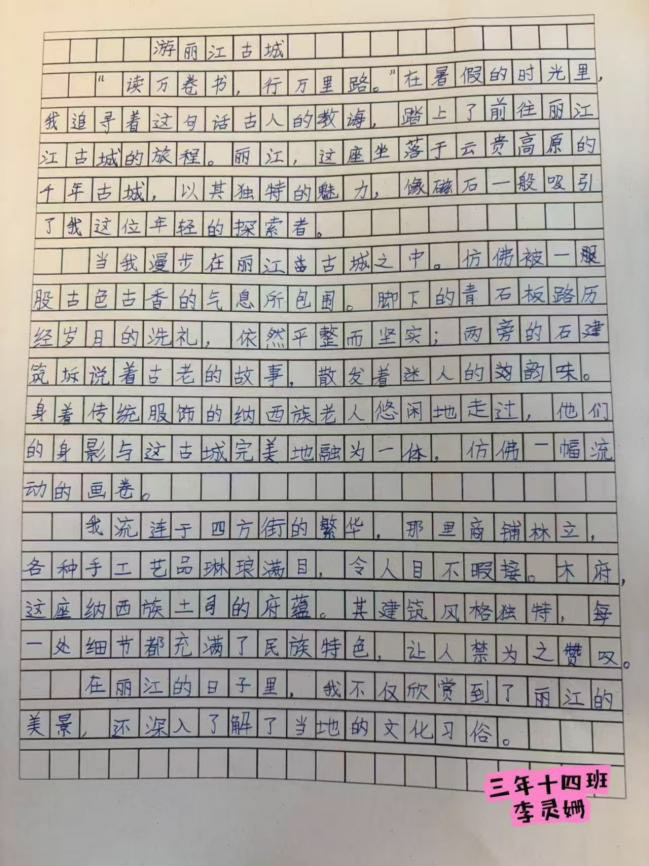 游丽江古城
“读万卷书，行万里路。”在暑假的时光里，
我追寻着这句话古人的教诲，踏上了前往丽江
江古城的旅程。丽江，这座坐落于云贵高原的
千年古城，以其独特的魅力，像磁石一般吸引
了我这位年轻的探索者。
当我漫步在丽江古城之中。仿佛被一股
股古色古香的气息所包围。脚下的青石板路历
经岁月的洗礼，依然平整而坚实；两旁的石建
筑坼说着古老的故事，散发着迷人的韵味。
身着传统服饰的纳西族老人悠闲地走过，他们
的身影与这古城完美地融为一体，仿佛一幅流
动的画卷。
我流连于四方街的繁华，那里商铺林立，
各种手工艺品琳琅满目，令人目不暇接。木府，
这座纳西族土司的府蕴。其建筑风格独特，每
一处细节都充满了民族特色，让人禁为之赞叹。
在丽江的日子里，我不仅欣赏到了丽江的
美景，还深入了解了当地的文化习俗。
三年十四班
李灵姗